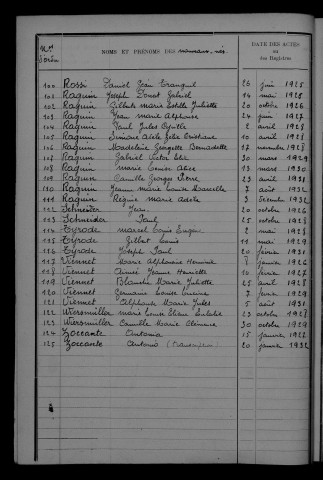 Nos d'ordre
NOMS ET PRÉNOMS DES nés
DATE DES ACTES ou des Registres
100 Rossi Daniel Jean 26 juin 1925
101 Raguin Joseph Ernest Gabriel 14 mai 1925
102 Raguin Gilberte Marie Juliette 20 octobre 1926
103 Raguin Jean Marie Alphonse 24 juin 1927
104 Raguin Paul Jules 2 avril 1928
105 Raguin Simone Adèle 10 avril 1928
106 Raguin Madeleine Georgette Bernadette 17 novembre 1928
107 Raguin Gabriel Victor 30 mars 1929
108 Raguin Marie Louise Alice 13 mars 1930
109 Raguin Camille Georges Pierre 23 avril 1931
110 Raguin Jeanne Marie Louise Marcelle 7 août 1932
111 Raguin Régine Marie 3 Décembre 1932
112 Schneider Jean 20 octobre 1926
113 Schneider Paul 20 octobre 1926
114 Tyrode Marcel Louis Eugène 2 mai 1928
115 Tyrode Gilbert Louis 11 mai 1929
116 Tyrode Joseph Paul 20 février 1931
117 Viennet Marie Alphonsine 8 janvier 1926
118 Viennet Aimée Jeanne Henriette 10 février 1927
119 Viennet Blanche Marie Juliette 25 avril 1928
120 Viennet Germaine Louise 7 février 1929
121 Viennet Alphonse Marie Jules 5 août 1931
122 Wiersmüller Marie Louise Eulalie 23 octobre 1928
123 Wiersmüller Camille Marie Clémence 30 octobre 1929
124 Zoccante Antonia 15 janvier 1928
125 Zoccante Antonio 20 janvier 1932